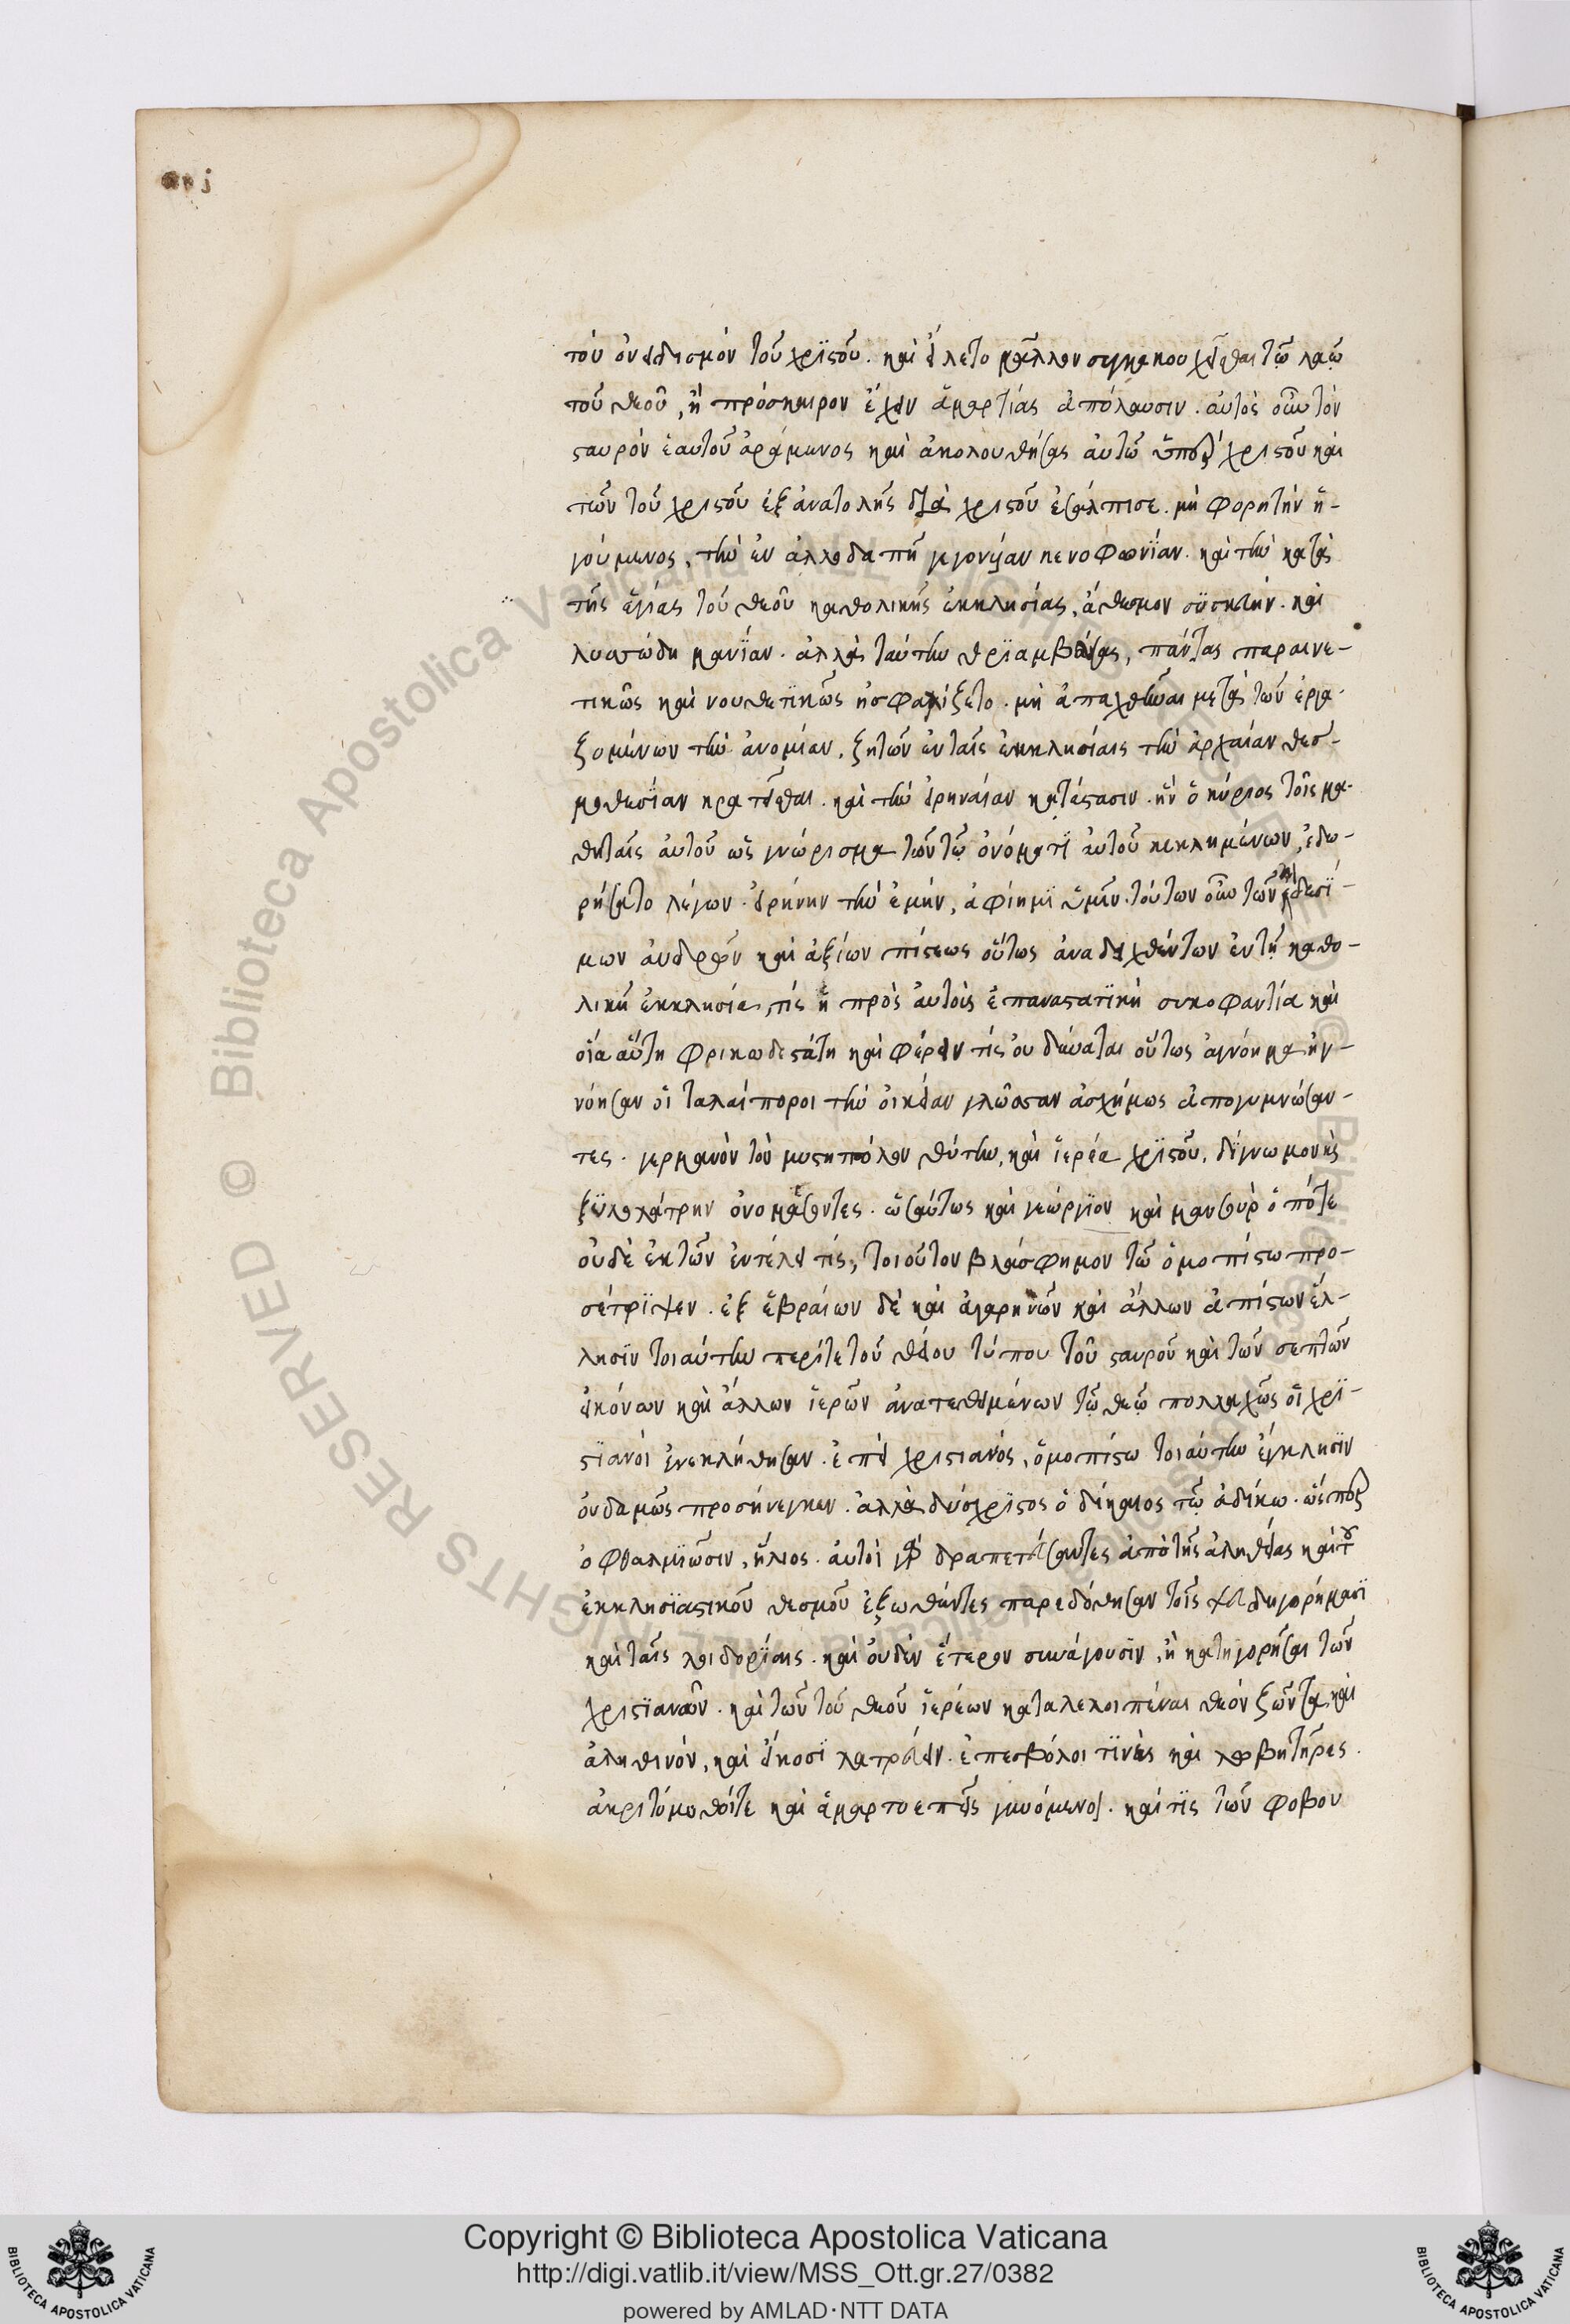 τὸν ὀνειδισμὸν τοῦ χριστοῦ. καὶ εἵλετο μᾶλλον συγκακουχεῖσθαι τῷ λαῷ
τοῦ θεοῦ, ἢ πρόσκαιρον ἔχειν ἁμαρτίας ἀπόλαυσιν. αὐτὸς οὖν τὸν
σταυρὸν ἑαυτοῦ ἀράμενος καὶ ἀκολουθήσας αὐτῷ ὑπὲρ χριστοῦ καὶ
τῶν τοῦ χριστοῦ ἐξ ἀνατολῆς διὰ χριστοῦ ἐσάλπισε. μὴ φορητὴν ἡ-
γούμενος, τὴν ἐν ἀλλοδαπῇ γεγονυῖαν κενοφωνίαν. καὶ τὴν κατὰ
τῆς ἁγίας τοῦ θεοῦ καθολικῆς ἐκκλησίας, ἄθεσμον σϋσκευήν. καὶ
λυσσώδη μανΐαν. ἀλλὰ ταύτην θρϊαμβεύσας, πάντας παραινε-
τικῶς καὶ νουθετϊκῶς ἠσφαλίζετο. μὴ ἀπαχθῆναι μετὰ τῶν ἐργα-
ζομένων τὴν ἀνομίαν. ζητῶν ἐν ταῖς ἐκκλησίαις τὴν ἀρχαίαν θεσ-
μοθεσΐαν κρατεῖσθαι. καὶ τὴν εἰρηναίαν κατάστασιν. ἣν ὁ κύριος τοῖς μα-
θηταῖς αὐτοῦ ὡς γνώρισμα τῶν τῷ ὀνόματϊ αὐτοῦ κεκλημένων, ἐδω-
ρήσατο λέγων. εἰρήνην τὴν ἐμήν, ἀφίημϊ ὑμῖν. τούτων οὖν τῶν αἰδεσΐ-
μων ἀνδρῶν καὶ ἀξίων πίστεως οὕτως ἀναδειχθέντων ἐν τῇ καθο-
λικῇ ἐκκλησίᾳ, τίς ἡ πρὸς αὐτοὺς ἐπαναστατϊκὴ συκοφαντία καὶ
οἵα αὕτη φρικωδεστάτη καὶ φέρειν τίς οὐ δύναται οὕτως ἀγνόημα ἠγ-
νόησαν οἱ ταλαίποροι τὴν οἰκείαν γλῶσσαν ἀσχήμως ἀπογυμνώσαν-
τες. γερμανὸν τὸν μυστηπόλον θύτην, καὶ ἱερέα χρϊστοῦ, δϊγνωμον εἰς
ξϋλολάτρην ὀνομάσαντες. ὡσαύτως καὶ γεώργϊον καὶ μανσοὺρ ὁπότε
οὐδὲ ἐκ τῶν ἐντέλει τίς, τοιοῦτον βλάσφημον τῷ ὁμοπίστῳ προ-
σέτριψεν. ἐξ ἑβραίων δὲ καὶ ἀγαρηνῶν καὶ ἄλλων ἀπίστων ἕλ-
λησϊν τοιαύτην περί τε τοῦ θείου τύπου τοῦ σταυροῦ καὶ τῶν σεπτῶν
εἰκόνων καὶ ἄλλων ἱερῶν ἀνατεθειμένων τῷ θεῷ πολλαχῶς οἱ χρϊ-
στϊανοὶ ἐνεκλήθησαν. ἐπεὶ χριστιανός, ὁμοπίστῳ τοιαύτην ἔγκλησϊν
οὐδαμῶς προσήνεγκεν. ἀλλὰ δύσχρϊστος ὁ δίκαιος τῷ ἀδίκῳ. ὥσπερ
ὀφθαλμϊῶσιν, ἥλιος. αὐτοὶ γὰρ δραπετεύσαντες ἀπὸ τῆς ἀληθείας καὶ τοῦ
ἐκκλησϊαστικοῦ θεσμοῦ ἐξωθέντες παρεδόθησαν τοῖς ψευδηγορήμασϊ
καὶ ταῖς λοιδορΐαις. καὶ οὐδὲν ἕτερον συνάγουσϊν, ἢ κατηγορῆσαι τῶν
χριστϊανῶν. καὶ τῶν τοῦ θεοῦ ἱερέων καταλελοιπέναι θεὸν ζῶντα καὶ
ἀληθινόν, καὶ εἰκοσϊ λατρεύειν. ἐπεσβόλοι τϊνὲς καὶ λωβητῆρες.
ἀκριτόμυθοί τε καὶ ἁμαρτοεπεῖς γινόμενοι. καί τϊς τῶν φοβου